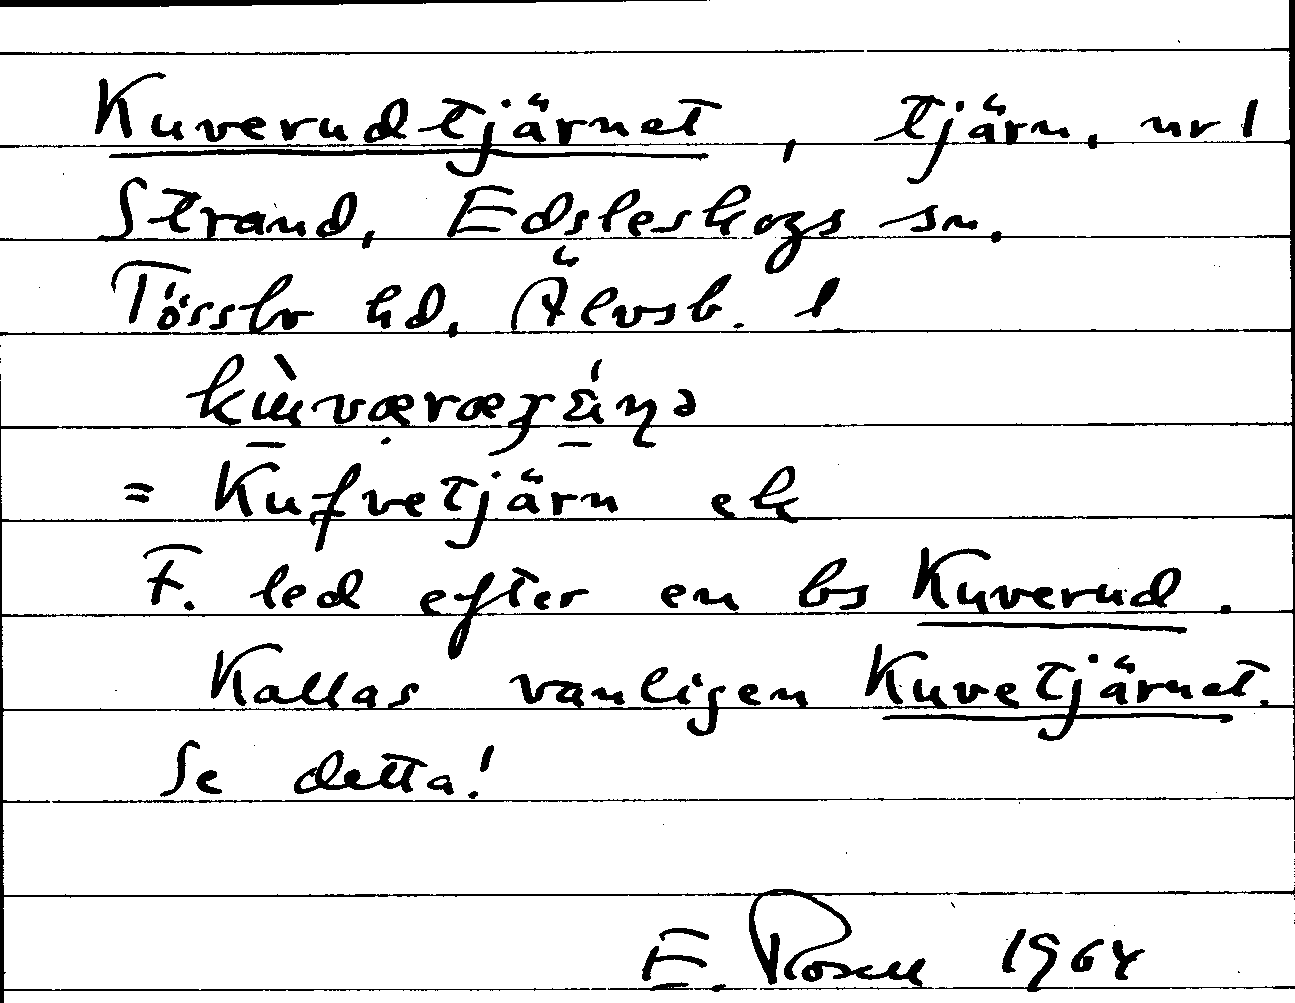 Kuverudtjärnet, tjärn, nr 1
Strand, Edsleskogs sn.
Tössbo hd, Älvsb. l
= Kufvetjärn ek
F. led efter en bs Kuverud.
Kallas vanligen Kuvetjärnet.
Se detta!
E. Rosell 1964